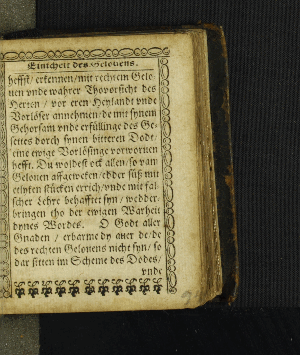 Einicheit des Gelovens.
hefft/ erkennen/ mit rechtem Gelo
uen vnde wahrer Thovorsicht des
Herren / vor eren Heylandt vnde
Vorlöser annehmen/ de mit synem
Gehorsam vnde erfüllinge des Ge-
settes dorch synen bitteren Dodt
eine ewige Vorlösinge vorworuen
hefft. Du woldest ock allen/ so van
Gelouen affgeweken/ edder süß mit
etlyken stücken errich/ vnde mit fal-
scher Lehre behafftet syn/ wedder-
bringen tho der ewigen Warheit
dynes Wordes. O Godt aller
Gnaden / erbarme dy auer de/ de
des rechten Gelouens nicht syn/ so
dar sitten im Scheme des Dodes/
vnde